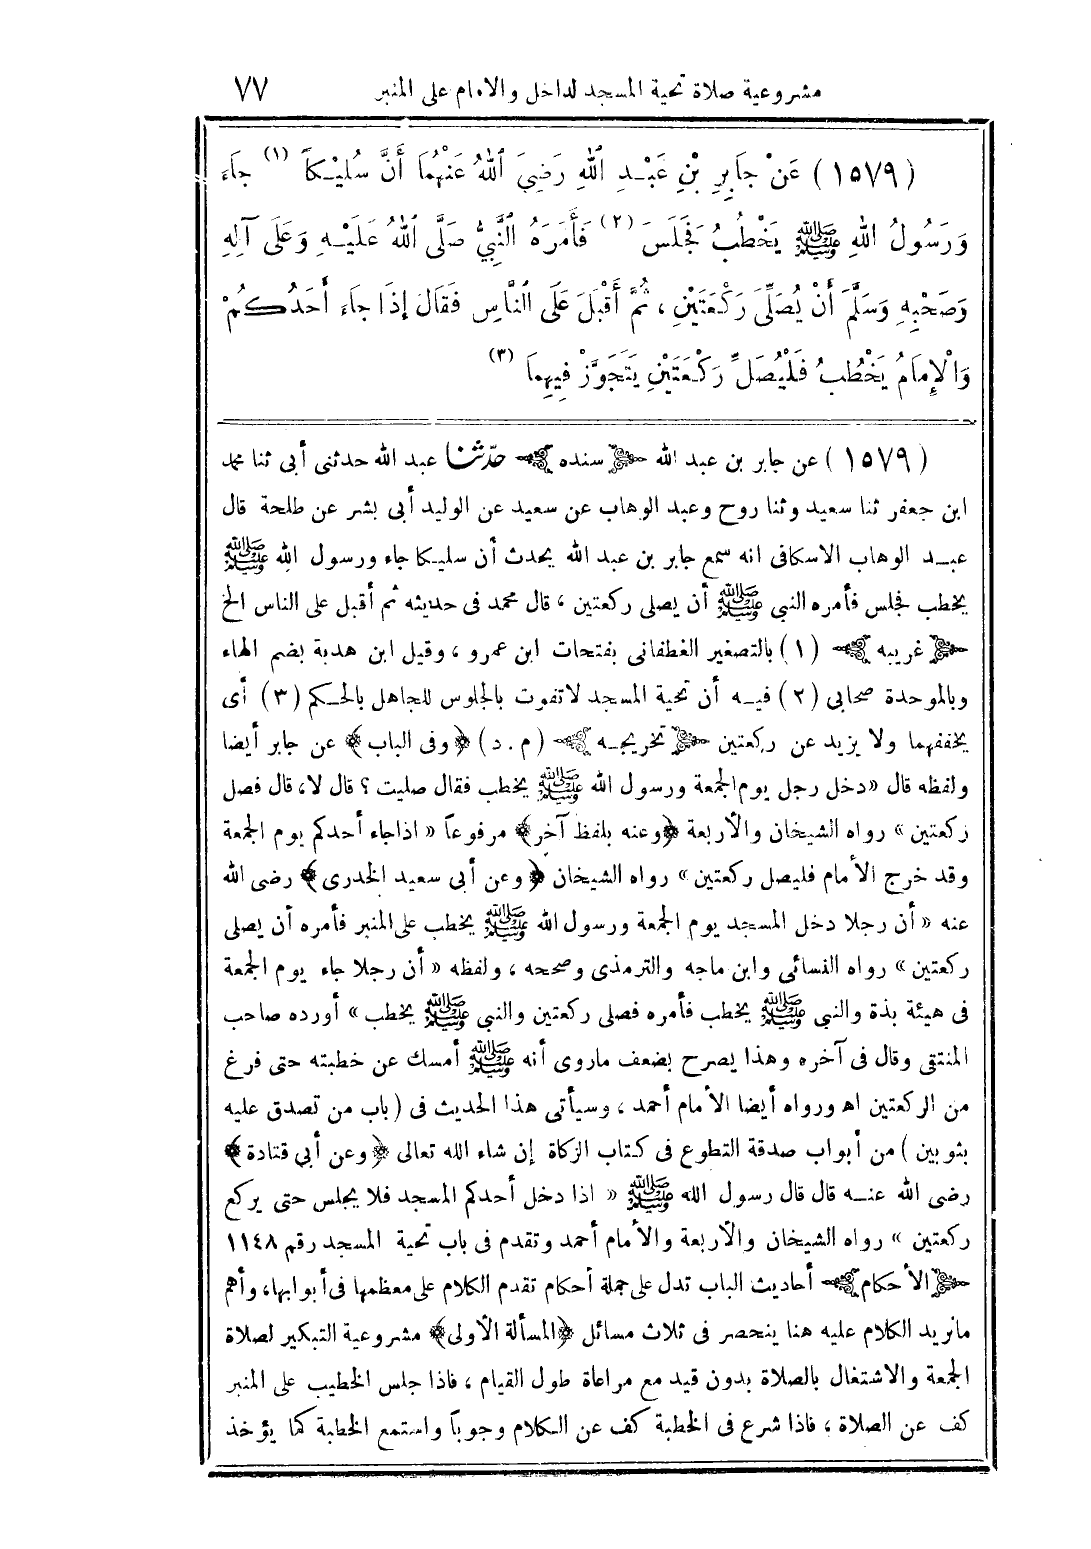 مشروعية صلاة تحية المسجد لداخل والامام على المنبر ٧٧
(١٥٧٩) عَنْ جَابِرِ بْنِ عَبْدِ اللهِ رَضِيَ اللهُ عَنْهُمَا أَنَّ سُلَيْكاً (١) جَاءَ
وَرَسُولُ اللهِ ﷺ يَخْطُبُ فَجَلَسَ (٢) فَأَمَرَهُ النَّبِيُّ صَلَّى اللهُ عَلَيْهِ وَعَلَى آلِهِ
وَصَحْبِهِ وَسَلَّمَ أَنْ يُصَلِّىَ رَكْعَتَيْنِ ، ثُمَّ أَقْبَلَ عَلَى النَّاسِ فَقَالَ إِذَا جَاءَ أَحَدُكُمْ
وَالْإِمَامُ يَخْطُبُ فَلْيُصَلِّ رَكْعَتَيْنِ يَتَجَوَّزْ فِيهِمَا (٣)
(١٥٧٩) عن جابر بن عبد الله ﴿ سنده ﴾ حدّثنا عبد الله حدثنى أبى ثنا محمد
ابن جعفر ثنا سعيد وثنا روح وعبد الوهاب عن سعيد عن الوليد أبى بشر عن طلحة قال
عبد الوهاب الاسكافى انه سمع جابر بن عبد الله يحدث أن سليكا جاء ورسول الله ﷺ
يخطب فجلس فأمره النبي ﷺ أن يصلى ركعتين ، قال محمد فى حديثه ثم أقبل على الناس الخ
﴿ غريبه ﴾ (١) بالتصغير الغطفانى بفتحات ابن عمرو ، وقيل ابن هدبة بضم الهاء
وبالموحدة صحابي (٢) فيه أن تحية المسجد لاتفوت بالجلوس للجاهل بالحكم (٣) أى
يخففهما ولا يزيد عن ركعتين ﴿ تخريجه ﴾ (م . د) ﴿ وفى الباب ﴾ عن جابر أيضا
ولفظه قال «دخل رجل يوم الجمعة ورسول الله ﷺ يخطب فقال صليت ؟ قال لا، قال فصل
ركعتين» رواه الشيخان والأربعة ﴿وعنه بلفظ آخر﴾ مرفوعاً « اذا جاء أحدكم يوم الجمعة
وقد خرج الأمام فليصل ركعتين» رواه الشيخان ﴿ وعن أبى سعيد الخدرى ﴾ رضى الله
عنه « أن رجلا دخل المسجد يوم الجمعة ورسول الله ﷺ يخطب على المنبر فأمره أن يصلى
ركعتين» رواه النسائى وابن ماجه والترمذى وصححه ، ولفظه « أن رجلا جاء يوم الجمعة
فى هيئة بذة والنبي ﷺ يخطب فأمره فصلى ركعتين والنبي ﷺ يخطب» أورده صاحب
المنتقى وقال فى آخره وهذا يصرح بضعف ماروى أنه ﷺ أمسك عن خطبته حتى فرغ
من الركعتين اه ورواه أيضا الأمام أحمد ، وسيأتى هذا الحديث فى (باب من تصدق عليه
بثوبين ) من أبواب صدقة التطوع فى كتاب الزكاة إن شاء الله تعالى ﴿ وعن أبي قتادة ﴾
رضى الله عنه قال قال رسول الله ﷺ « اذا دخل أحدكم المسجد فلا يجلس حتى يركع
ركعتين » رواه الشيخان والأربعة والأمام أحمد وتقدم فى باب تحية المسجد رقم ١١٤٨
﴿ الأحكام ﴾ أحاديث الباب تدل على جملة أحكام تقدم الكلام على معظمها فى أبوابها، وأهم
مانريد الكلام عليه هنا ينحصر فى ثلاث مسائل ﴿المسألة الأولى﴾ مشروعية التبكير لصلاة
الجمعة والاشتغال بالصلاة بدون قيد مع مراعاة طول القيام ، فاذا جلس الخطيب على المنبر
كف عن الصلاة ، فاذا شرع فى الخطبة كف عن الكلام وجوباً واستمع الخطبة كما يؤخذ